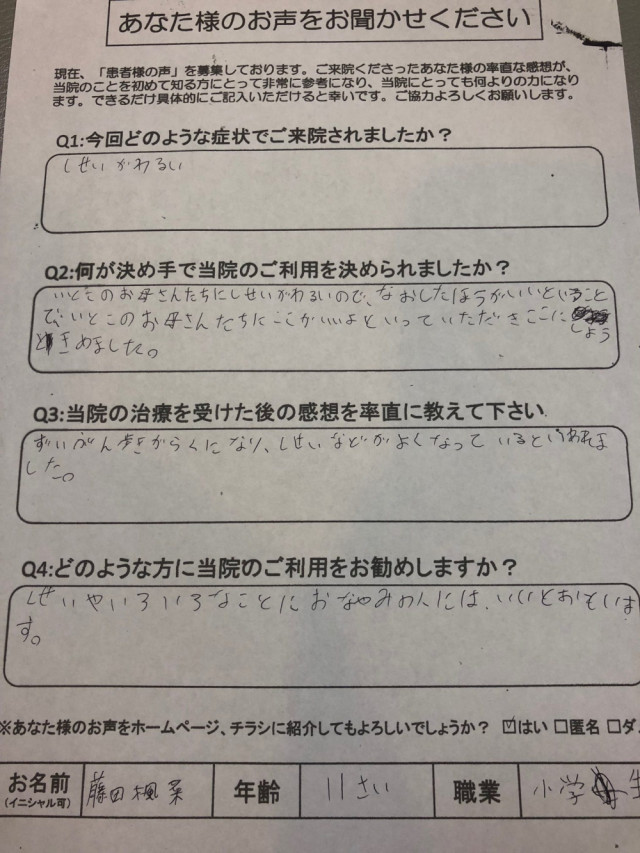 あなた様のお声をお聞かせください
現在、「患者様の声」を募集しております。ご来院くださったあなた様の率直な感想が、
当院のことを初めて知る方にとって非常に参考になり、当院にとっても何よりの力になり
ます。できるだけ具体的にご記入いただけると幸いです。ご協力よろしくお願いします。
Q1:今回どのような症状でご来院されましたか？
しせいがわるい
Q2:何が決め手で当院のご利用を決められましたか？
いとこのお母さんたちにしせいがわるいので、なおしたほうがいいということ
で、いとこのお母さんたちにここがいいよといっていただきここにしよう
ときめました。
Q3:当院の治療を受けた後の感想を率直に教えて下さい
ずいぶん歩きがらくになり、しせいなどがよくなっているといわれま
した。
Q4:どのような方に当院のご利用をお勧めしますか？
しせいやいろいろなことにおなやみの人には、いいとおもいま
す。
※あなた様のお声をホームページ、チラシに紹介してもよろしいでしょうか？ ☑はい □匿名 □ダ
お名前 藤田楓菜 年齢 11さい 職業 小学生
(イニシャル可)